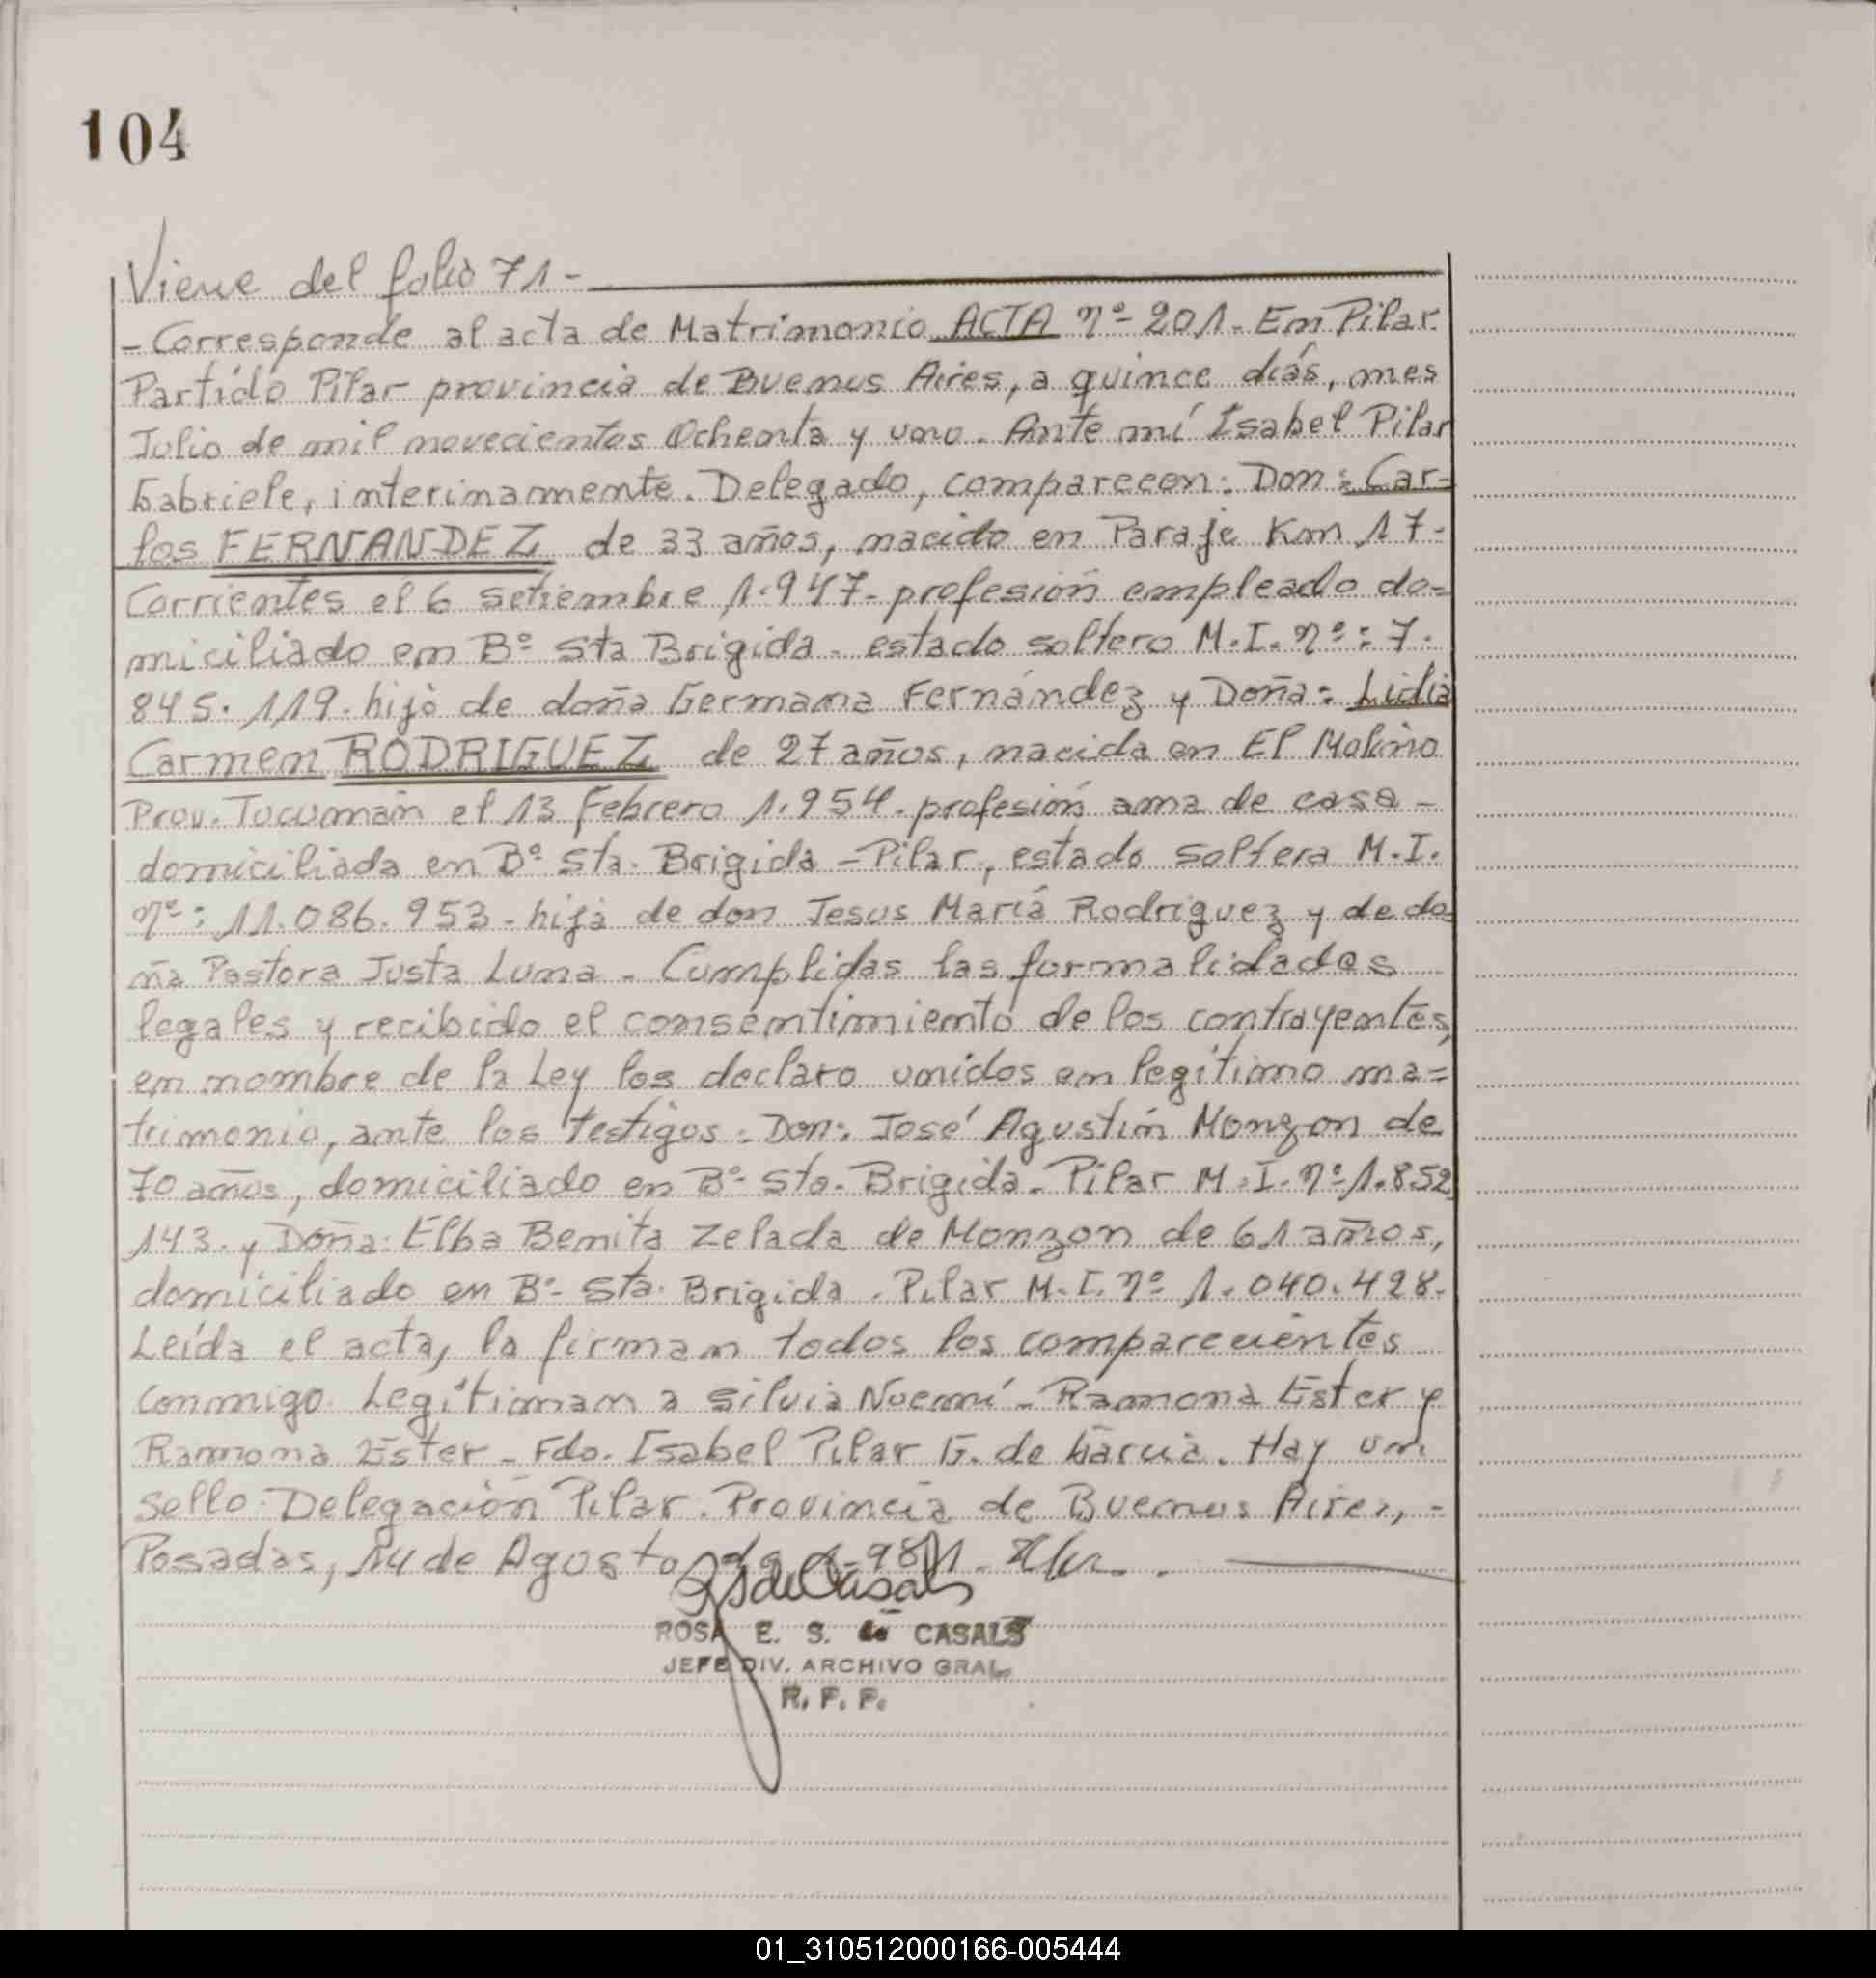 104
Viene del folio 71-
- Corresponde al acta de Matrimonio ACTA nº 201. En Pilar
Partido Pilar provincia de Buenos Aires, a quince días, mes
Julio de mil novecientos Ochenta y uno. Ante mí Isabel Pilar
Gabriele, interinamente. Delegado, comparecen: Don: Car=
los FERNANDEZ de 33 años, nacido en Paraje Km 17-
Corrientes el 6 setiembre 1.947- profesión empleado do=
miciliado en Bº Sta Brigida - estado soltero M.I. nº: 7.
845. 119. hijo de doña Germana Fernández y Doña: Lidia
Carmen RODRIGUEZ de 27 años, nacida en El Molino
Prov. Tucumán el 13 Febrero 1.954. profesión ama de casa -
domiciliada en Bº Sta. Brigida - Pilar, estado soltera M.I.
nº: 11.086.953 - hija de don Jesus María Rodriguez y de do=
ña Pastora Justa Luna - Cumplidas las formalidades
legales y recibido el consentimiento de los contrayentes,
en nombre de la Ley los declaro unidos en legítimo ma=
trimonio, ante los testigos: Don: José Agustín Monzon de
70 años, domiciliado en Bº Sta. Brigida. Pilar M.I. nº 1.852
143. y Doña: Elba Benita Zelada de Monzon de 61 años,
domiciliado en Bº Sta. Brigida. Pilar M.I. nº 1.040.428.
Leída el acta, la firman todos los comparecientes
conmigo. Legitiman a Silvia Noemí - Ramona Ester y
Ramona Ester - Fdo. Isabel Pilar G. de García. Hay un
sello. Delegación Pilar. Provincia de Buenos Aires, -
Posadas, 14 de Agosto de 1.981.
ROSA E. S. de CASALS
JEFE DIV. ARCHIVO GRAL.
R. P. P.
01_310512000166-005444